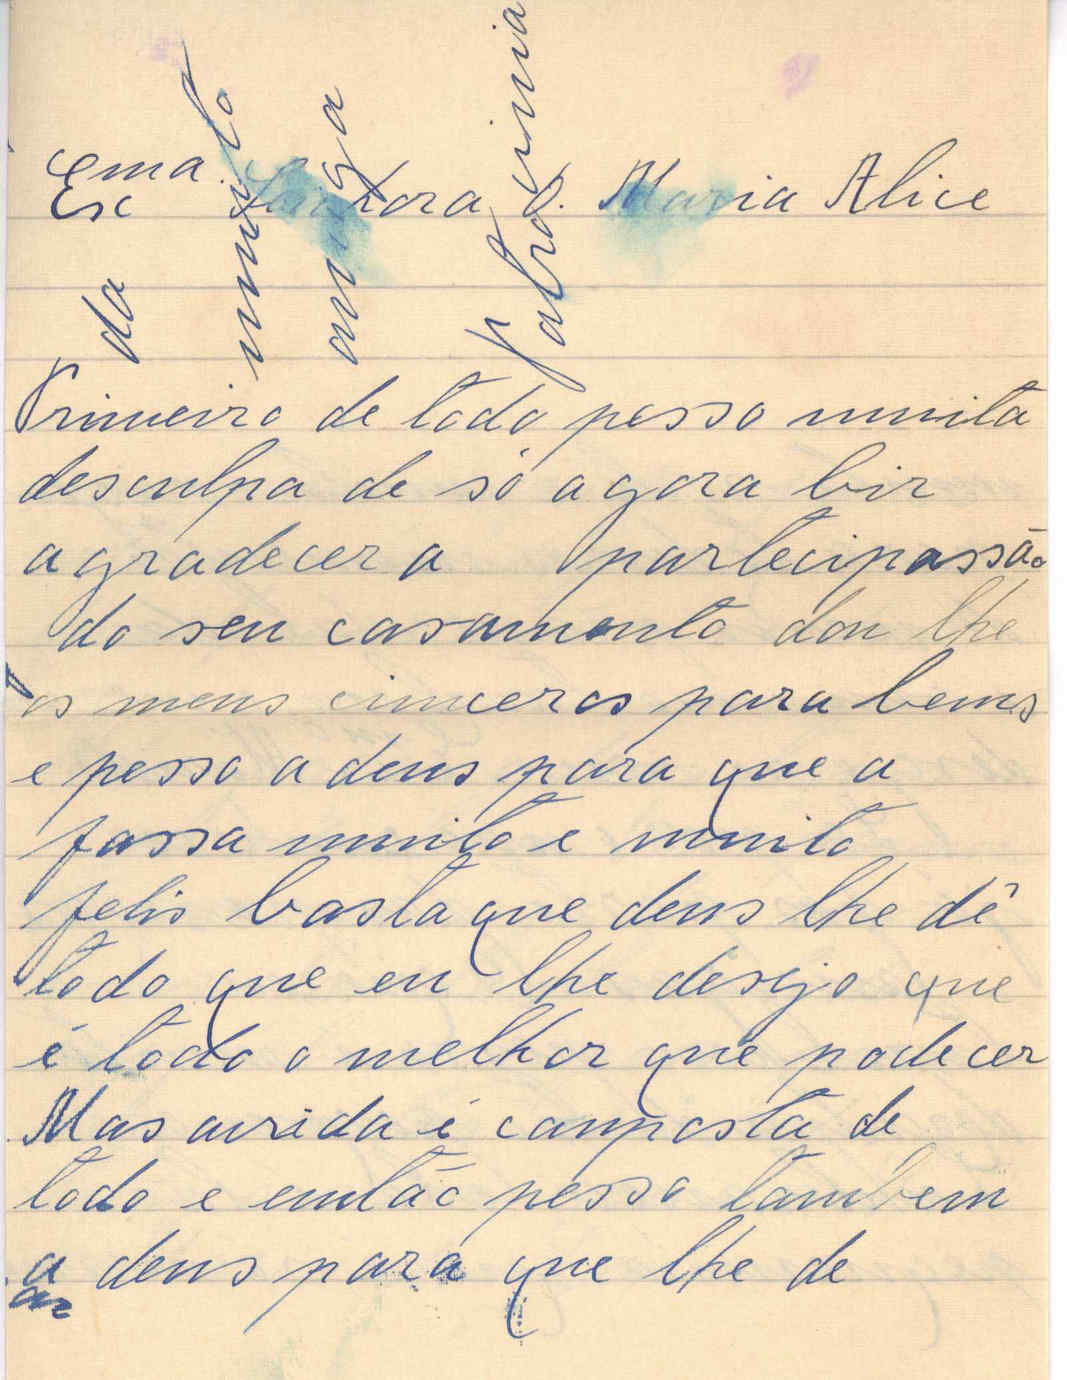 Ema
Esc Senhora D. Maria Alice
Primeiro de todo pesso muita
desculpa de só agora bir
agradecer a partecipassão
do seu casamento dou lhe
os meus cinceros para bems
e pesso a deus para que a
fassa muito e muito
felis basta que deus lhe dê
todo que eu lhe desejo que
é todo o melhor que podecer
Mas avida é composta de
todo e emtão pesso tambem
a deus para que lhe de
da
muito
amiga
Patrocinia